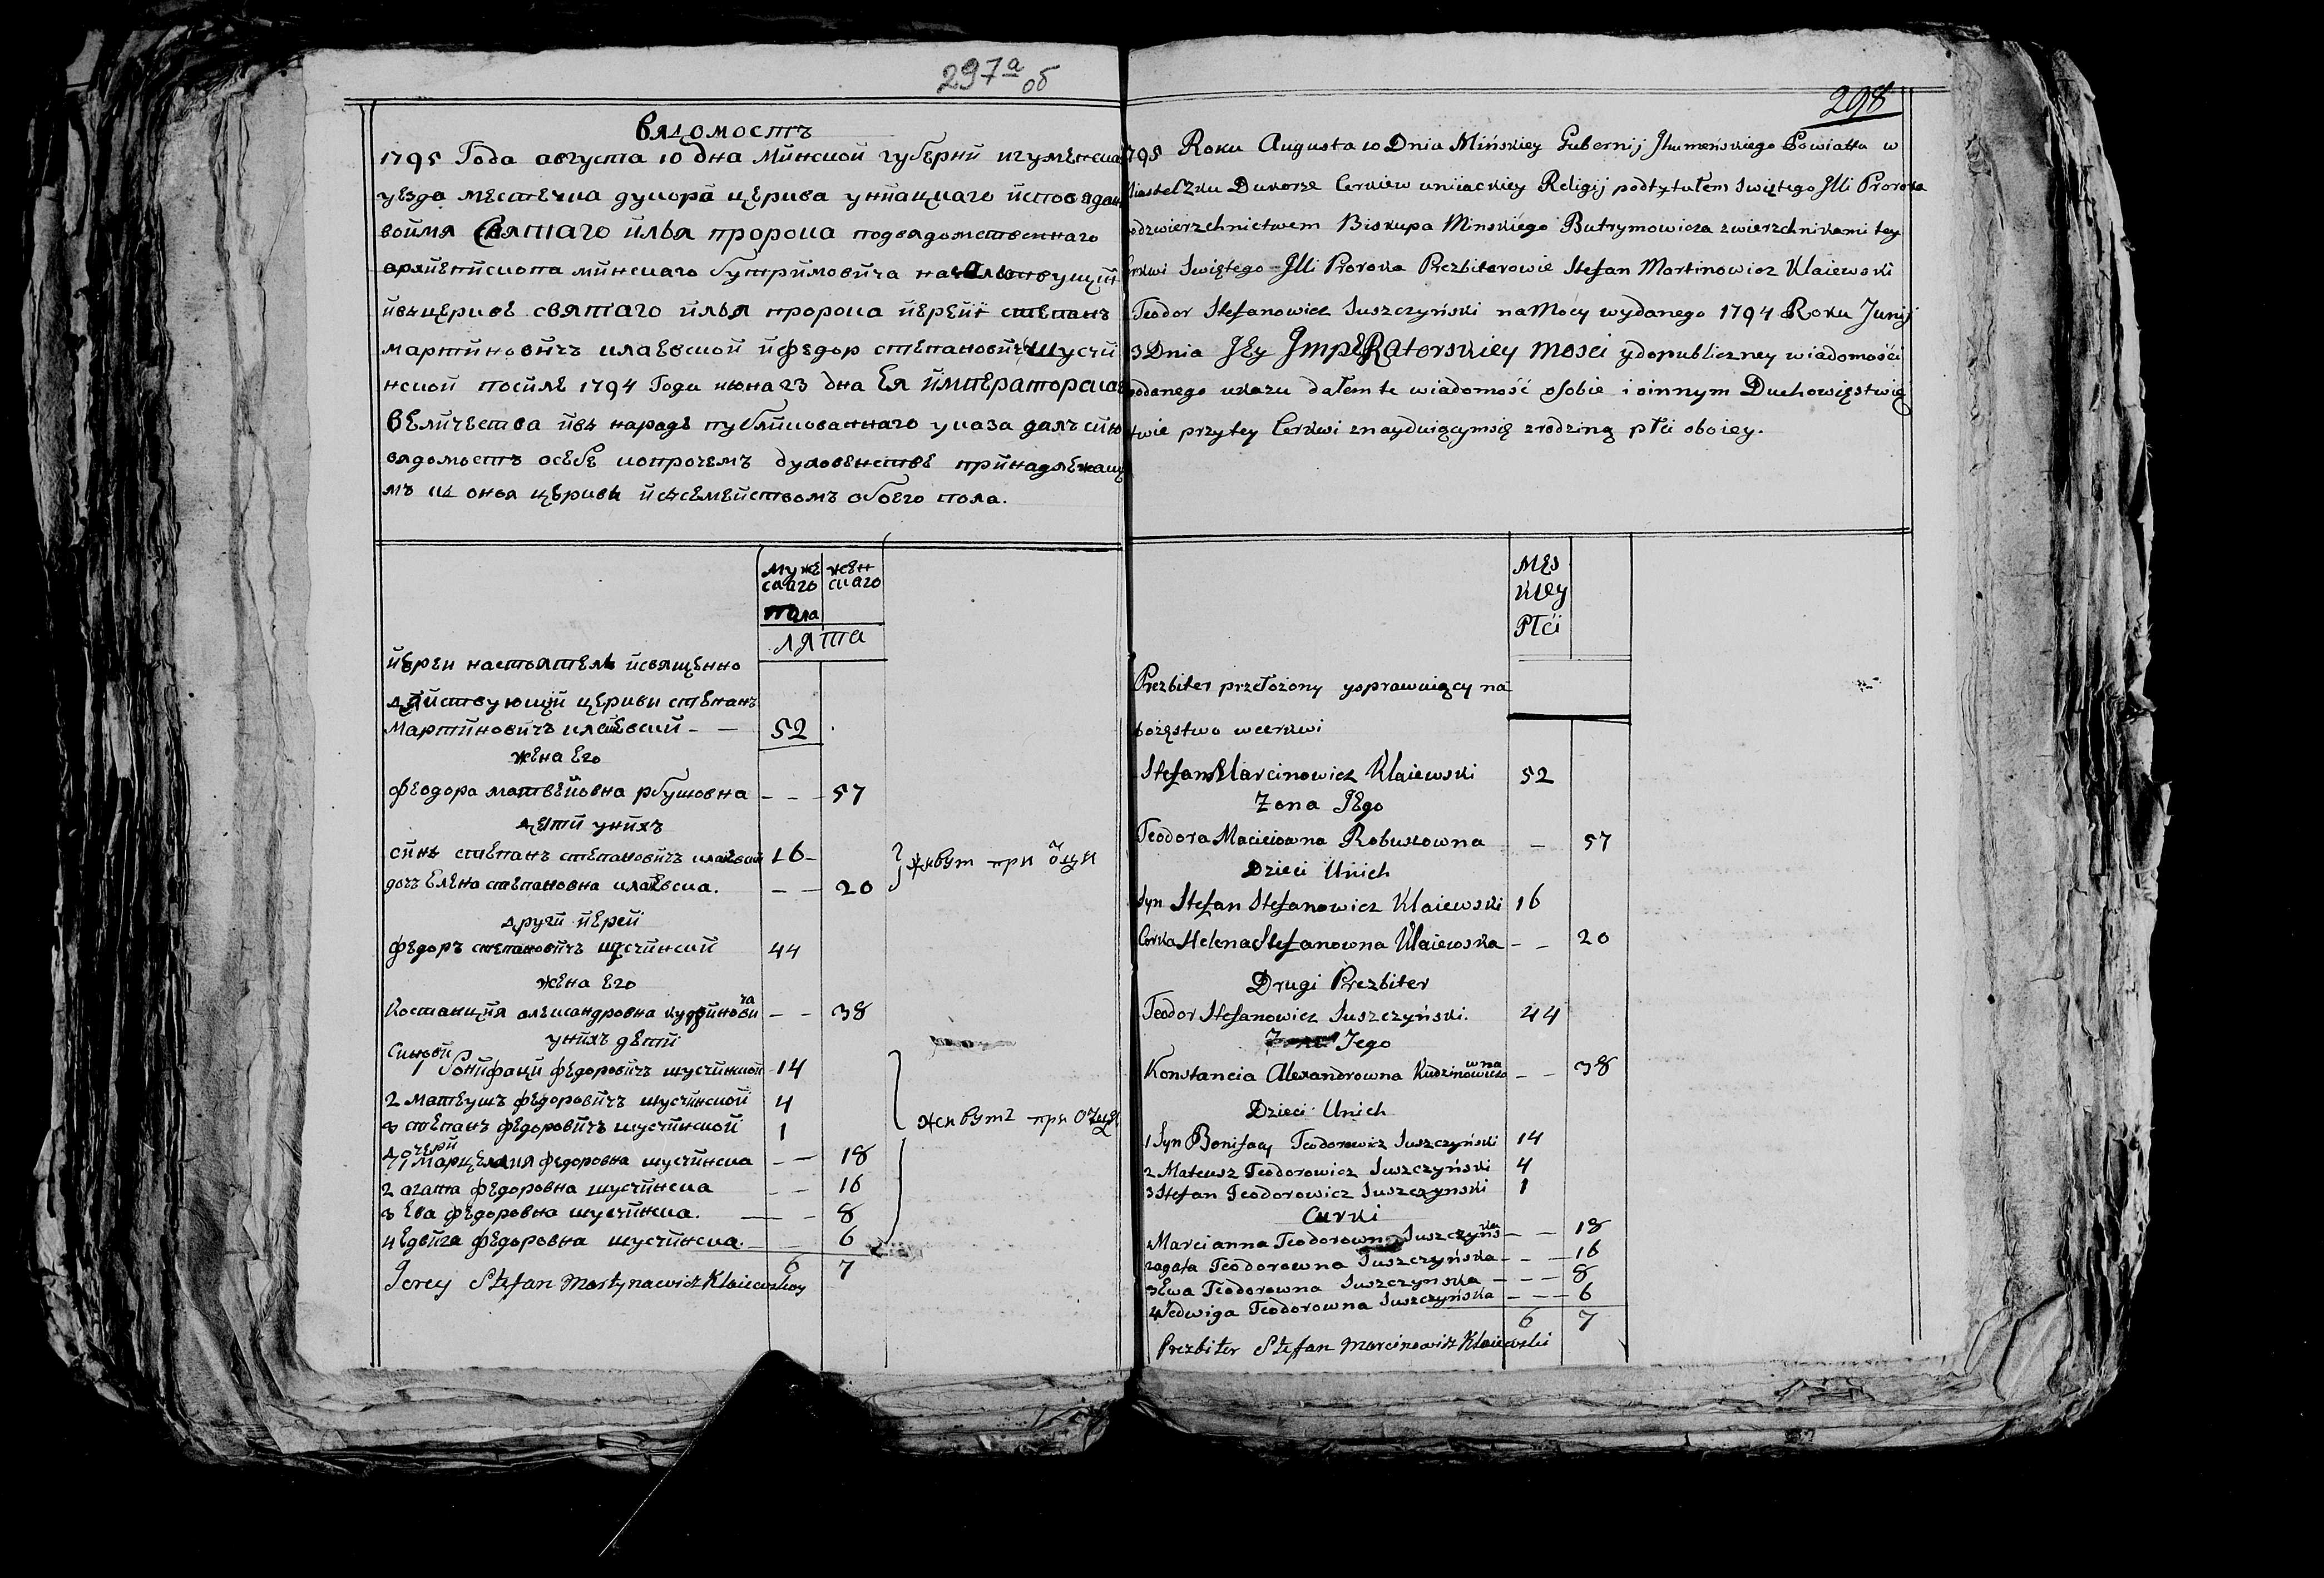 297а об
вядомостъ
1795 Года августа 10 дна Минской губерни игуменска
уезда местечка дукора церква униацкаго исповядан
воимя Святаго илья пророка подвядомственнаго
архиепископа минскаго бутримовича началствущи
ивъцеркве святаго илья пророка иерейи степанъ
мартиновичъ клаевской ифедор степановичъ шусчи
нской посиле 1794 Года июна 23 дна Ея императорска
величества ивъ народе публикованнаго указа далъ сию
вядомостъ осебе иопрочемъ духовенстве принадлежащ
мъ къ оноя церкви исъсемействомъ обоего пола.
муже скаго пола
жен скаго
ЛЯТА
иереи настоятель исвященно
действующи церкви степанъ
мартиновичъ клаевский - — 52
жена Его
феодора матвеиовна рбушовна - - - 57
дети унихъ
синъ степанъ степановичъ клаевски 16-
дочъ Елена степановна клаевска. - — 20
живут при оцы
други иерей
федоръ степановичъ шусчинский 44
жена Его
Костанция александровна кудзинови ча - — 38
унихъ дети
Синови
1 Бонифаци федоровичъ шусчинской 14
2 матеушъ федоровичъ шусчинской 4
3 степанъ федоровичъ шусчинской 1
дочери
1 Марцелия федоровна шусчинска - — 18
2 агата федоровна шусчинска - — 16
3 Ева федоровна шусчинска. — - 8
4 Едвига федоровна шусчинска. - — 6
живутъ при отце
6 7
Jerey Stefan Martynowicz Klaiewskoy
298
1795 Roku Augusta 10 Dnia Mińskiey Gubernij Jhumeńskiego Powiatta w
Miasteczku Dukorze Cerkiew uniiackiey Religij podtytułem Swiętego Jlli Proroka
podzwierzchnictwem Biskupa Minskiego Butrymowicza zwierzchnikami tey
Cerkwi Swiętego Jlli Proroka Prezbiterowie Stefan Martinowicz Klaiewski
Teodor Stefanowicz Suszczyński naMocy wydanego 1794 Roku Junij
3 Dnia JEy JmpERatorskiey Mosci ydopubliczney wiadomości
podanego ukazu dałem te wiadomość osobie i oinnym Duchowięstwie
twie przytey Cerkwi znayduiącymsię zrodziną płci oboiey.
MĘs kiey Płći
Prezbiter przełożony ysprawuiący na
bożęstwo wcerkwi
Stefan Marcinowicz Klaiewski 52
Zona JEgo
Teodora Macieiowna Robuszowna — 57
Dzieci Unich
Syn Stefan Stefanowicz Klaiewski 16
Corka Helena Stefanowna Klaiewska - — 20
Drugi Prezbiter
Teodor Stefanowicz Suszczyński. 44
Zona Jego
Konstancia Alexandrowna Kudzinowiczo wna - — 38
Dzieci Unich
1 Syn Bonifacy Teodorowicz Suszczyński 14
2 Mateusz Teodorowicz Suszczyński 4
3 Stefan Teodorowicz Suszczynski 1
Curki
1 Marcianna Teodorowna Suszczyńs ka - — 18
2 agata Teodorowna Suszczyńska - - — 16
3 Ewa Teodorowna Suszczynska - - — 8
4 Jedwiga Teodorowna Suszczyńska - - — 6
6 7
Prezbiter Stefan Marcinowicz Klaiewski